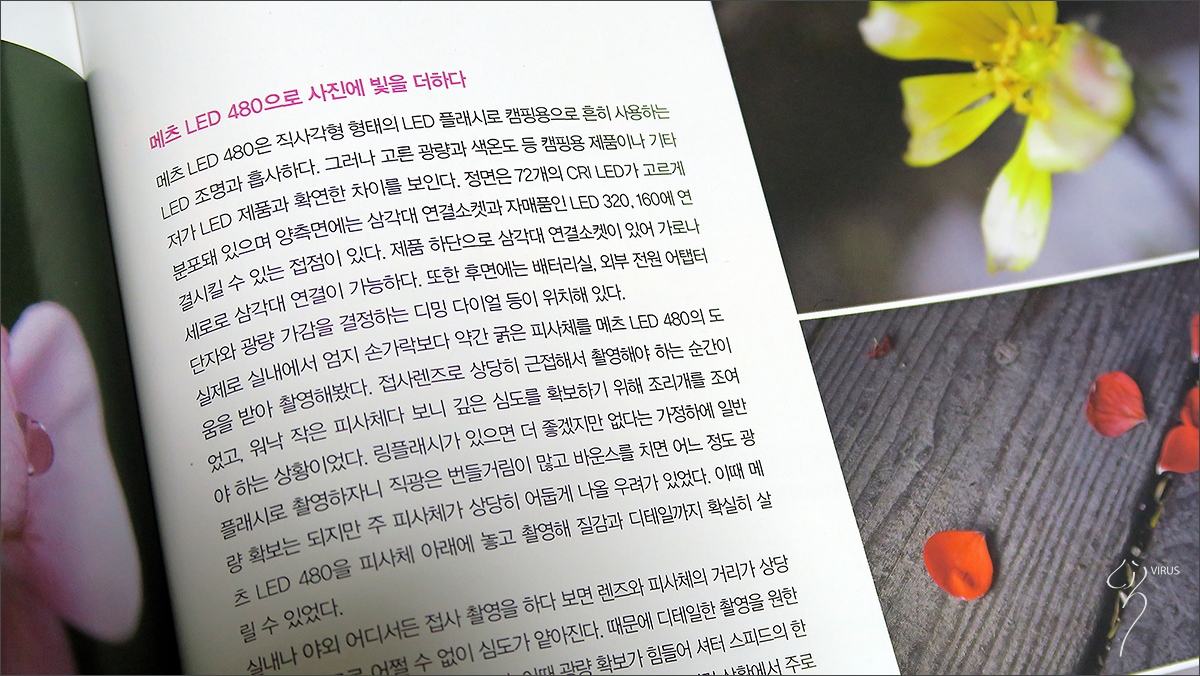 메츠 LED 480으로 사진에 빛을 더하다
메츠 LED 480은 직사각형 형태의 LED 플래시로 캠핑용으로 흔히 사용하는
LED 조명과 흡사하다. 그러나 고른 광량과 색온도 등 캠핑용 제품이나 기타
저가 LED 제품과 확연한 차이를 보인다. 정면은 72개의 CRI LED가 고르게
분포돼 있으며 양측면에는 삼각대 연결소켓과 자매품인 LED 320, 160에 연
결시킬 수 있는 접점이 있다. 제품 하단으로 삼각대 연결소켓이 있어 가로나
세로로 삼각대 연결이 가능하다. 또한 후면에는 배터리실, 외부 전원 어탭터
단자와 광량 가감을 결정하는 디밍 다이얼 등이 위치해 있다.
실제로 실내에서 엄지 손가락보다 약간 굵은 피사체를 메츠 LED 480의 도
움을 받아 촬영해봤다. 접사렌즈로 상당히 근접해서 촬영해야 하는 순간이
었고, 워낙 작은 피사체다 보니 깊은 심도를 확보하기 위해 조리개를 조여
야 하는 상황이었다. 링플래시가 있으면 더 좋겠지만 없다는 가정하에 일반
플래시로 촬영하자니 직광은 번들거림이 많고 바운스를 치면 어느 정도 광
량 확보는 되지만 주 피사체가 상당히 어둡게 나올 우려가 있었다. 이때 메
츠 LED 480을 피사체 아래에 놓고 촬영해 질감과 디테일까지 확실히 살
릴 수 있었다.
실내나 야외 어디서든 접사 촬영을 하다 보면 렌즈와 피사체의 거리가 상당
어쩔 수 없이 심도가 얕아진다. 때문에 디테일한 촬영을 원한
이때 광량 확보가 힘들어 셔터 스피드의 한
상황에서 주로
VIRUS